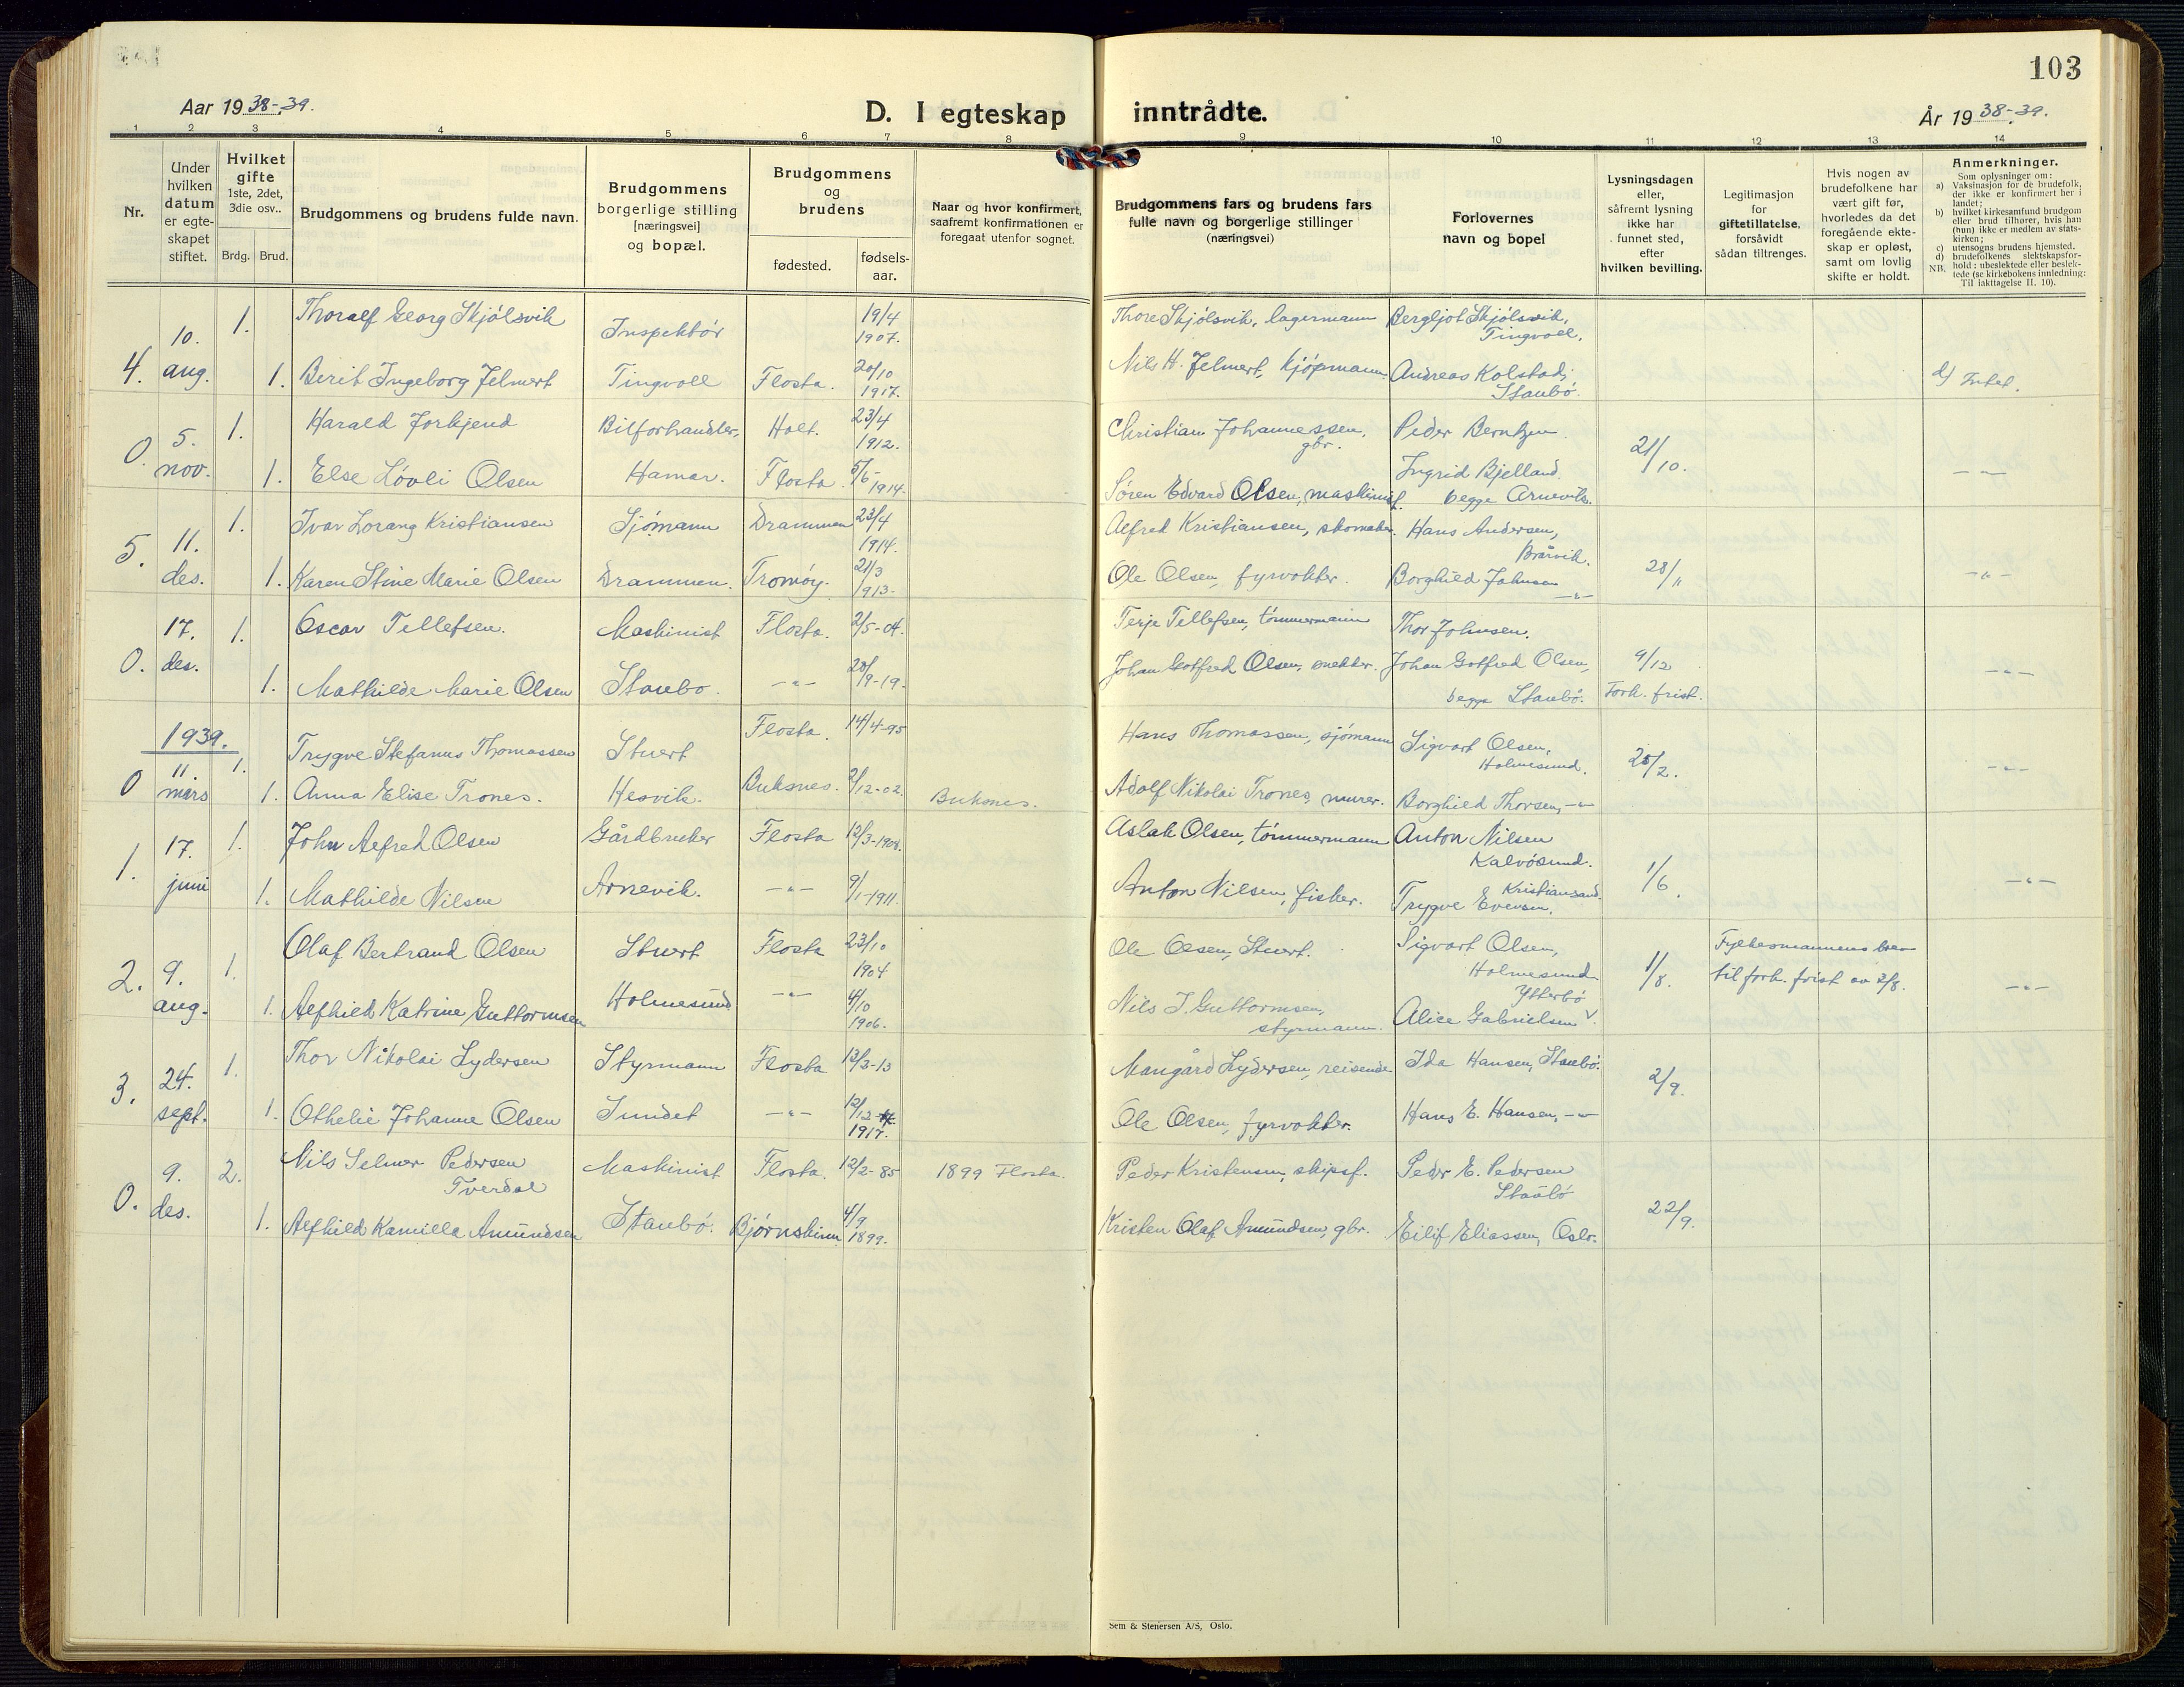 103
Aar 1938-39.
D. I egteskap inntrådte.
År 1938-39.
1 2 3 4 5 6 7 8 9 10 11 12 13 14
Nr.
Under hvilken datum er egte-skapet stiftet.
Hvilket gifte 1ste, 2det, 3die osv..
Brdg. Brud.
Brudgommens og brudens fulde navn.
Brudgommens borgerlige stilling [næringsvei] og bopæl.
Brudgommens og brudens
fødested.
fødsels-aar.
Naar og hvor konfirmert, saafremt konfirmationen er foregaat utenfor sognet.
Brudgommens fars og brudens fars fulle navn og borgerlige stillinger (næringsvei)
Forlovernes navn og bopel
Lysningsdagen eller, såfremt lysning ikke har funnet sted, efter hvilken bevilling.
Legitimasjon for giftetillatelse, forsåvidt sådan tiltrenges.
Hvis nogen av brudefolkene har vært gift før, hvorledes da det foregående ekte-skap er opløst, samt om lovlig skifte er holdt.
Anmerkninger.
Som oplysninger om:
a) Vaksinasjon for de brudefolk, der ikke er konfirmert her i landet;
b) hvilket kirkesamfund brudgom eller brud tilhører, hvis han (hun) ikke er medlem av stats-kirken;
c) utensogns brudens hjemsted.
d) brudefolkenes slektskapsfor-hold: ubeslektede eller beslek-tede (se kirkebokens innledning:
NB. Til iakttagelse II. 10).
10. 1. Thoralf Georg Skjölsvik Inspektör 19/4 1907. Thore Skjölsvik, lagermann Bergljot Skjölsvik, Tingvoll.
4. aug. 1. Berit Ingeborg Jelmert Tingvoll Flosta. 20/10 1917. Nils H. Jelmert, kjøpmann. Andreas Kolstad, Staubö. d) Intet.
5. 1. Harald Forkjend Bilforhandler, Holt. 23/4 1912. Christian Johannessen, gbr. Peder Berntzen
0. nov. 1. Else Lövli Olsen Hamar. Flosta. 5/6-1914. Søren Edvard Olsen, maskinist. Ingrid Bjelland begge Arnevik. 21/10. -"-
11. 1. Ivar Lorang Kristiansen Sjömann Drammen 23/4 1914. Alfred Kristiansen, skomaker. Hans Andersen, Brårvik.
5. des. 1. Karen Stine Marie Olsen Drammen. Tromöy. 21/3 1913. Ole Olsen, fyrvokter. Borghild Johnsen -"- 28/11 -"-
17. 1. Oscar Tellefsen. Maskinist Flosta. 2/5-04. Terje Tellefsen, tömmermann Thor Johnsen.
0. des. 1. Mathilde Marie Olsen Staubo. -"- 20/9-19. Johan Gotfred Olsen, snekker. Johan Gotfred Olsen, begge Staubö. 9/12 Fork. frist. -"-
1939.
11. 1. Trygve Stefanus Thomassen Stuert Flosta. 14/4-95 Hans Thomassen, sjömann Sigvart Olsen, Holmesund.
0 mars 1. Anna Elise Trones. Hesvik. Buksnes. 2/12-02. Buksnes. Adolf Nikolai Trones, murer. Borghild Thorsen, -"- 25/2. -"-
17. 1. John Alfred Olsen Gårdbruker Flosta 12/3-1908. Aslak Olsen, tömmermann Anton Nilsen Kalvösund.
1. juni 1. Mathilde Nilsen Arnevik. -"- 9/1-1911. Anton Nilsen, fisker. Trygve Evensen, Kristiansand. 1/6. -"-
2. 9. 1. Olaf Bertrand Olsen Stuert Flosta 23/10 1904 Ole Olsen, Stuert. Sigvart Olsen, Holmesund 1/8. Fylkesmannens brev til fork. frist av 2/8.
aug. 1. Alfhild Katrine Guttormsen Holmesund -"- 4/10 1906. Nils J. Guttormsen, styrmann. Alice Gabrielsen Ytterbö -"-
24. 1. Thor Nikolai Lydersen Styrmann Flosta 13/3-13 Mangård Lydersen, reisende Ida Hansen, Staubö.
3. sept. 1. Othelie Johanne Olsen Sundet -"- 12/12 1917. Ole Olsen, fyrvokter. Hans E. Hansen, -"- 2/9.
9. 2. Nils Selmer Pedersen Tverdal Maskinist Flosta. 12/2-85 1899 Flosta. Peder Kristensen, skipsf. Peder E. Pedersen Staubö
0. des. 1. Alfhild Kamilla Amundsen Staubö. Bjørnskinn 4/9 1899. Kristen Olaf Amundsen, gbr. Eilif Eliassen, Oslo. 22/9.
Sem & Stenersen A/S, Oslo.